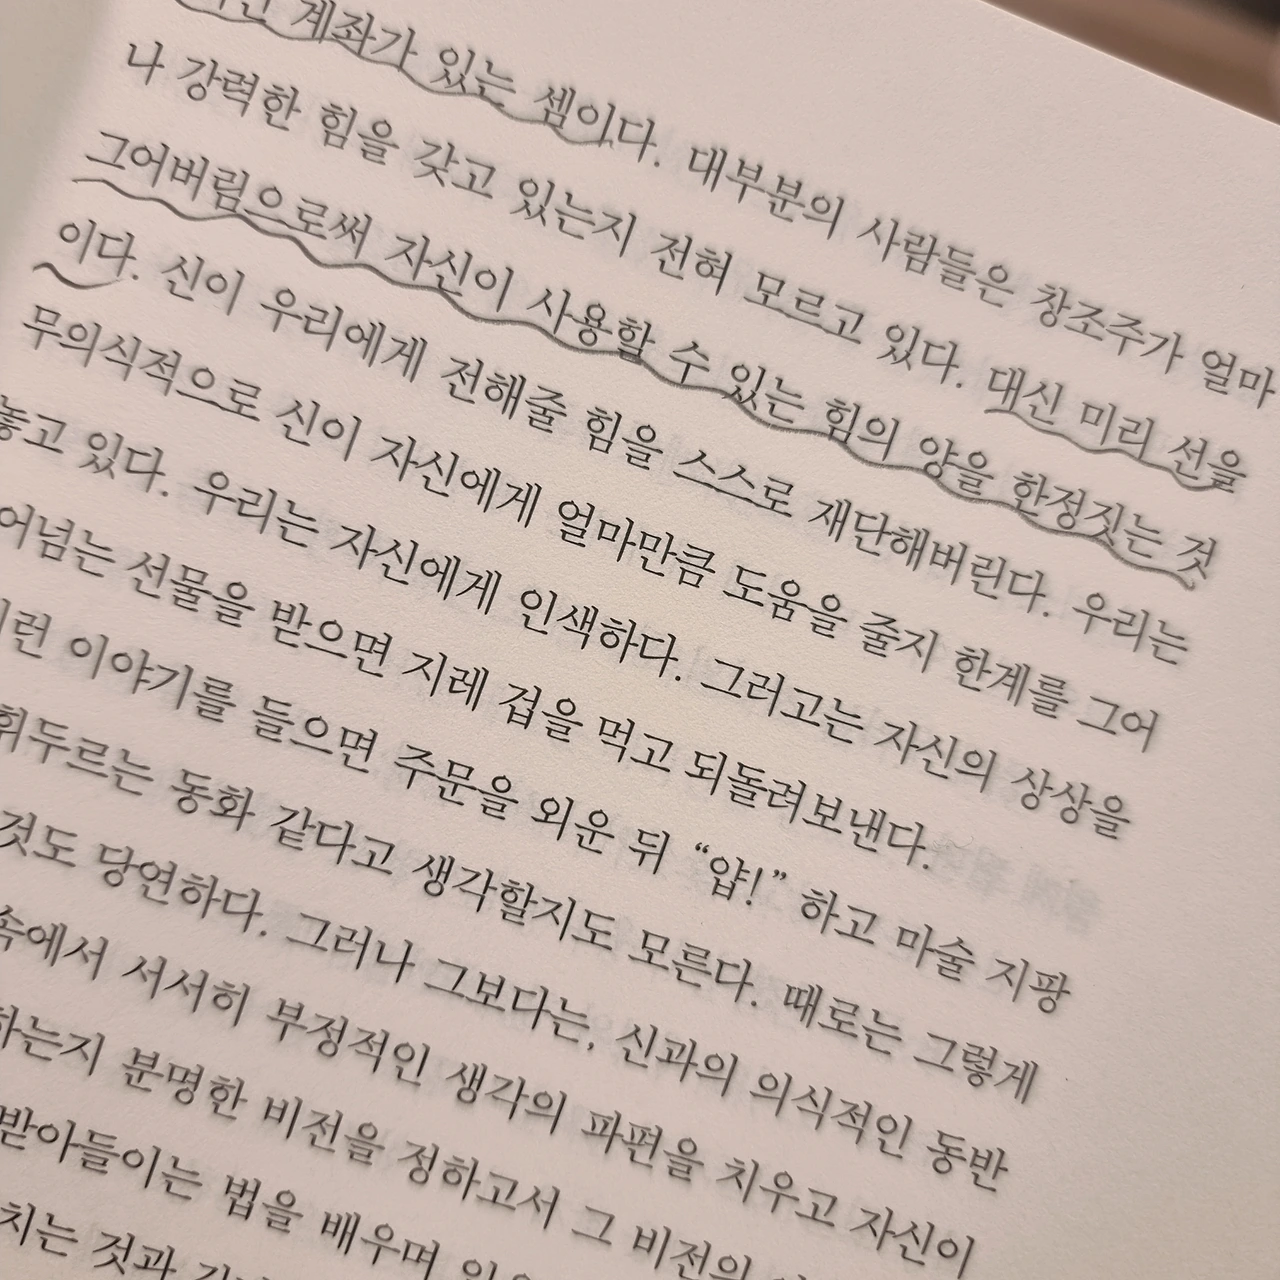 계좌가 있는 셈이다. 대부분의 사람들은 창조주가 얼마
나 강력한 힘을 갖고 있는지 전혀 모르고 있다. 대신 미리 선을
그어버림으로써 자신이 사용할 수 있는 힘의 양을 한정짓는 것
이다. 신이 우리에게 전해줄 힘을 스스로 재단해버린다. 우리는
무의식적으로 신이 자신에게 얼마만큼 도움을 줄지 한계를 그어
놓고 있다. 우리는 자신에게 인색하다. 그러고는 자신의 상상을
어넘는 선물을 받으면 지레 겁을 먹고 되돌려보낸다.
이야기를 들으면 주문을 외운 뒤 “얍!” 하고 마술 지팡
휘두르는 동화 같다고 생각할지도 모른다. 때로는 그렇게
것도 당연하다. 그러나 그보다는, 신과의 의식적인 동반
속에서 서서히 부정적인 생각의 파편을 치우고 자신이
하는지 분명한 비전을 정하고서 그 비전의
받아들이는 법을 배우며
치는 것과